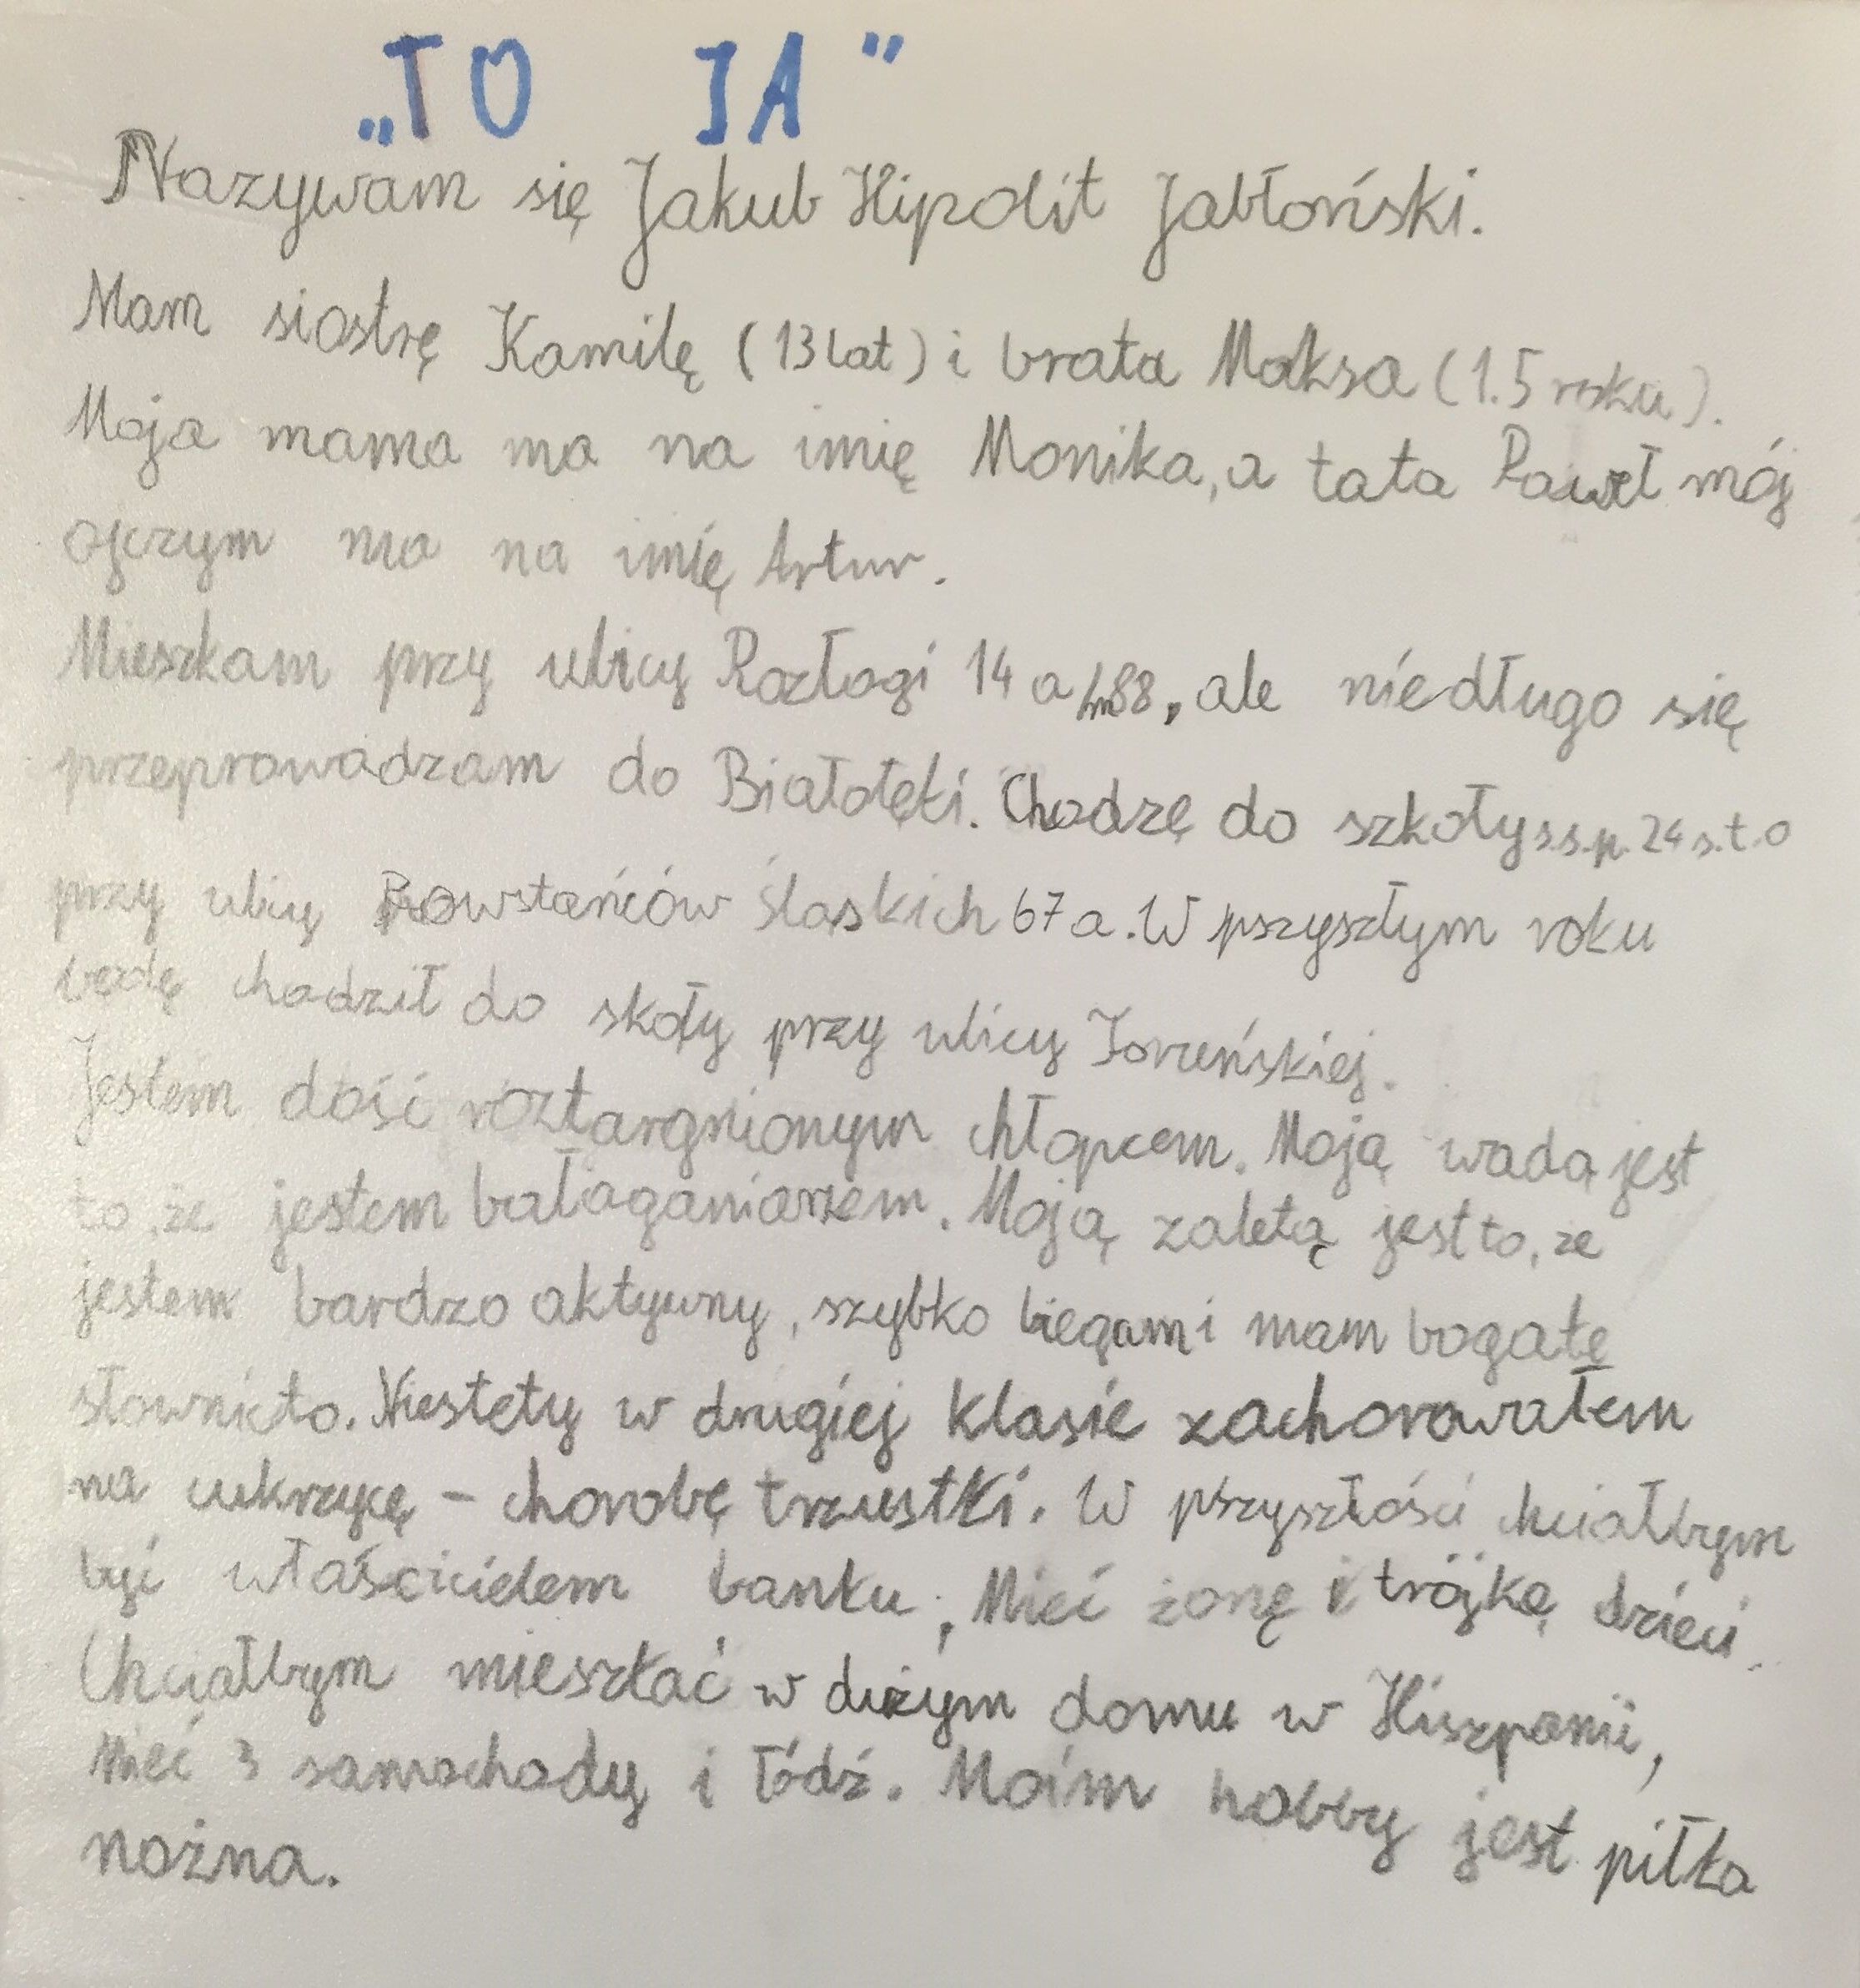 „TO JA"
Nazywam się Jakub Hipolit Jabłoński.
Mam siostrę Kamilę (13 lat) i brata Maksa (1.5 roku).
Moja mama ma na imię Monika, a tata Paweł mój
ojczym ma na imię Artur.
Mieszkam przy ulicy Rozłogi 14 a /m88, ale niedługo się
przeprowadzam do Białołęki. Chodzę do szkoły s.s.p. 24 s.t.o
przy ulicy Powstańców śląskich 67 a. W pszyszłym roku
będę chodził do skoły przy ulicy
Jestem dość roztargnionym chłopcem. Moją wadą jest
to, że jestem bałaganiarzem. Moją zaletą jest to, że
jestem bardzo aktywny, szybko biegam i mam bogate
słownicto. Niestety w drugiej klasie zachorowałem
na cukrzycę – chorobę trzustki. W pszyszłości chciałbym
być właścicielem banku, Mieć żonę i trójkę dzieci.
Chciałbym mieszkać w dużym domu w Hiszpanii,
Mieć 3 samochody i łódź. Moim hobby jest piłka
nożna.